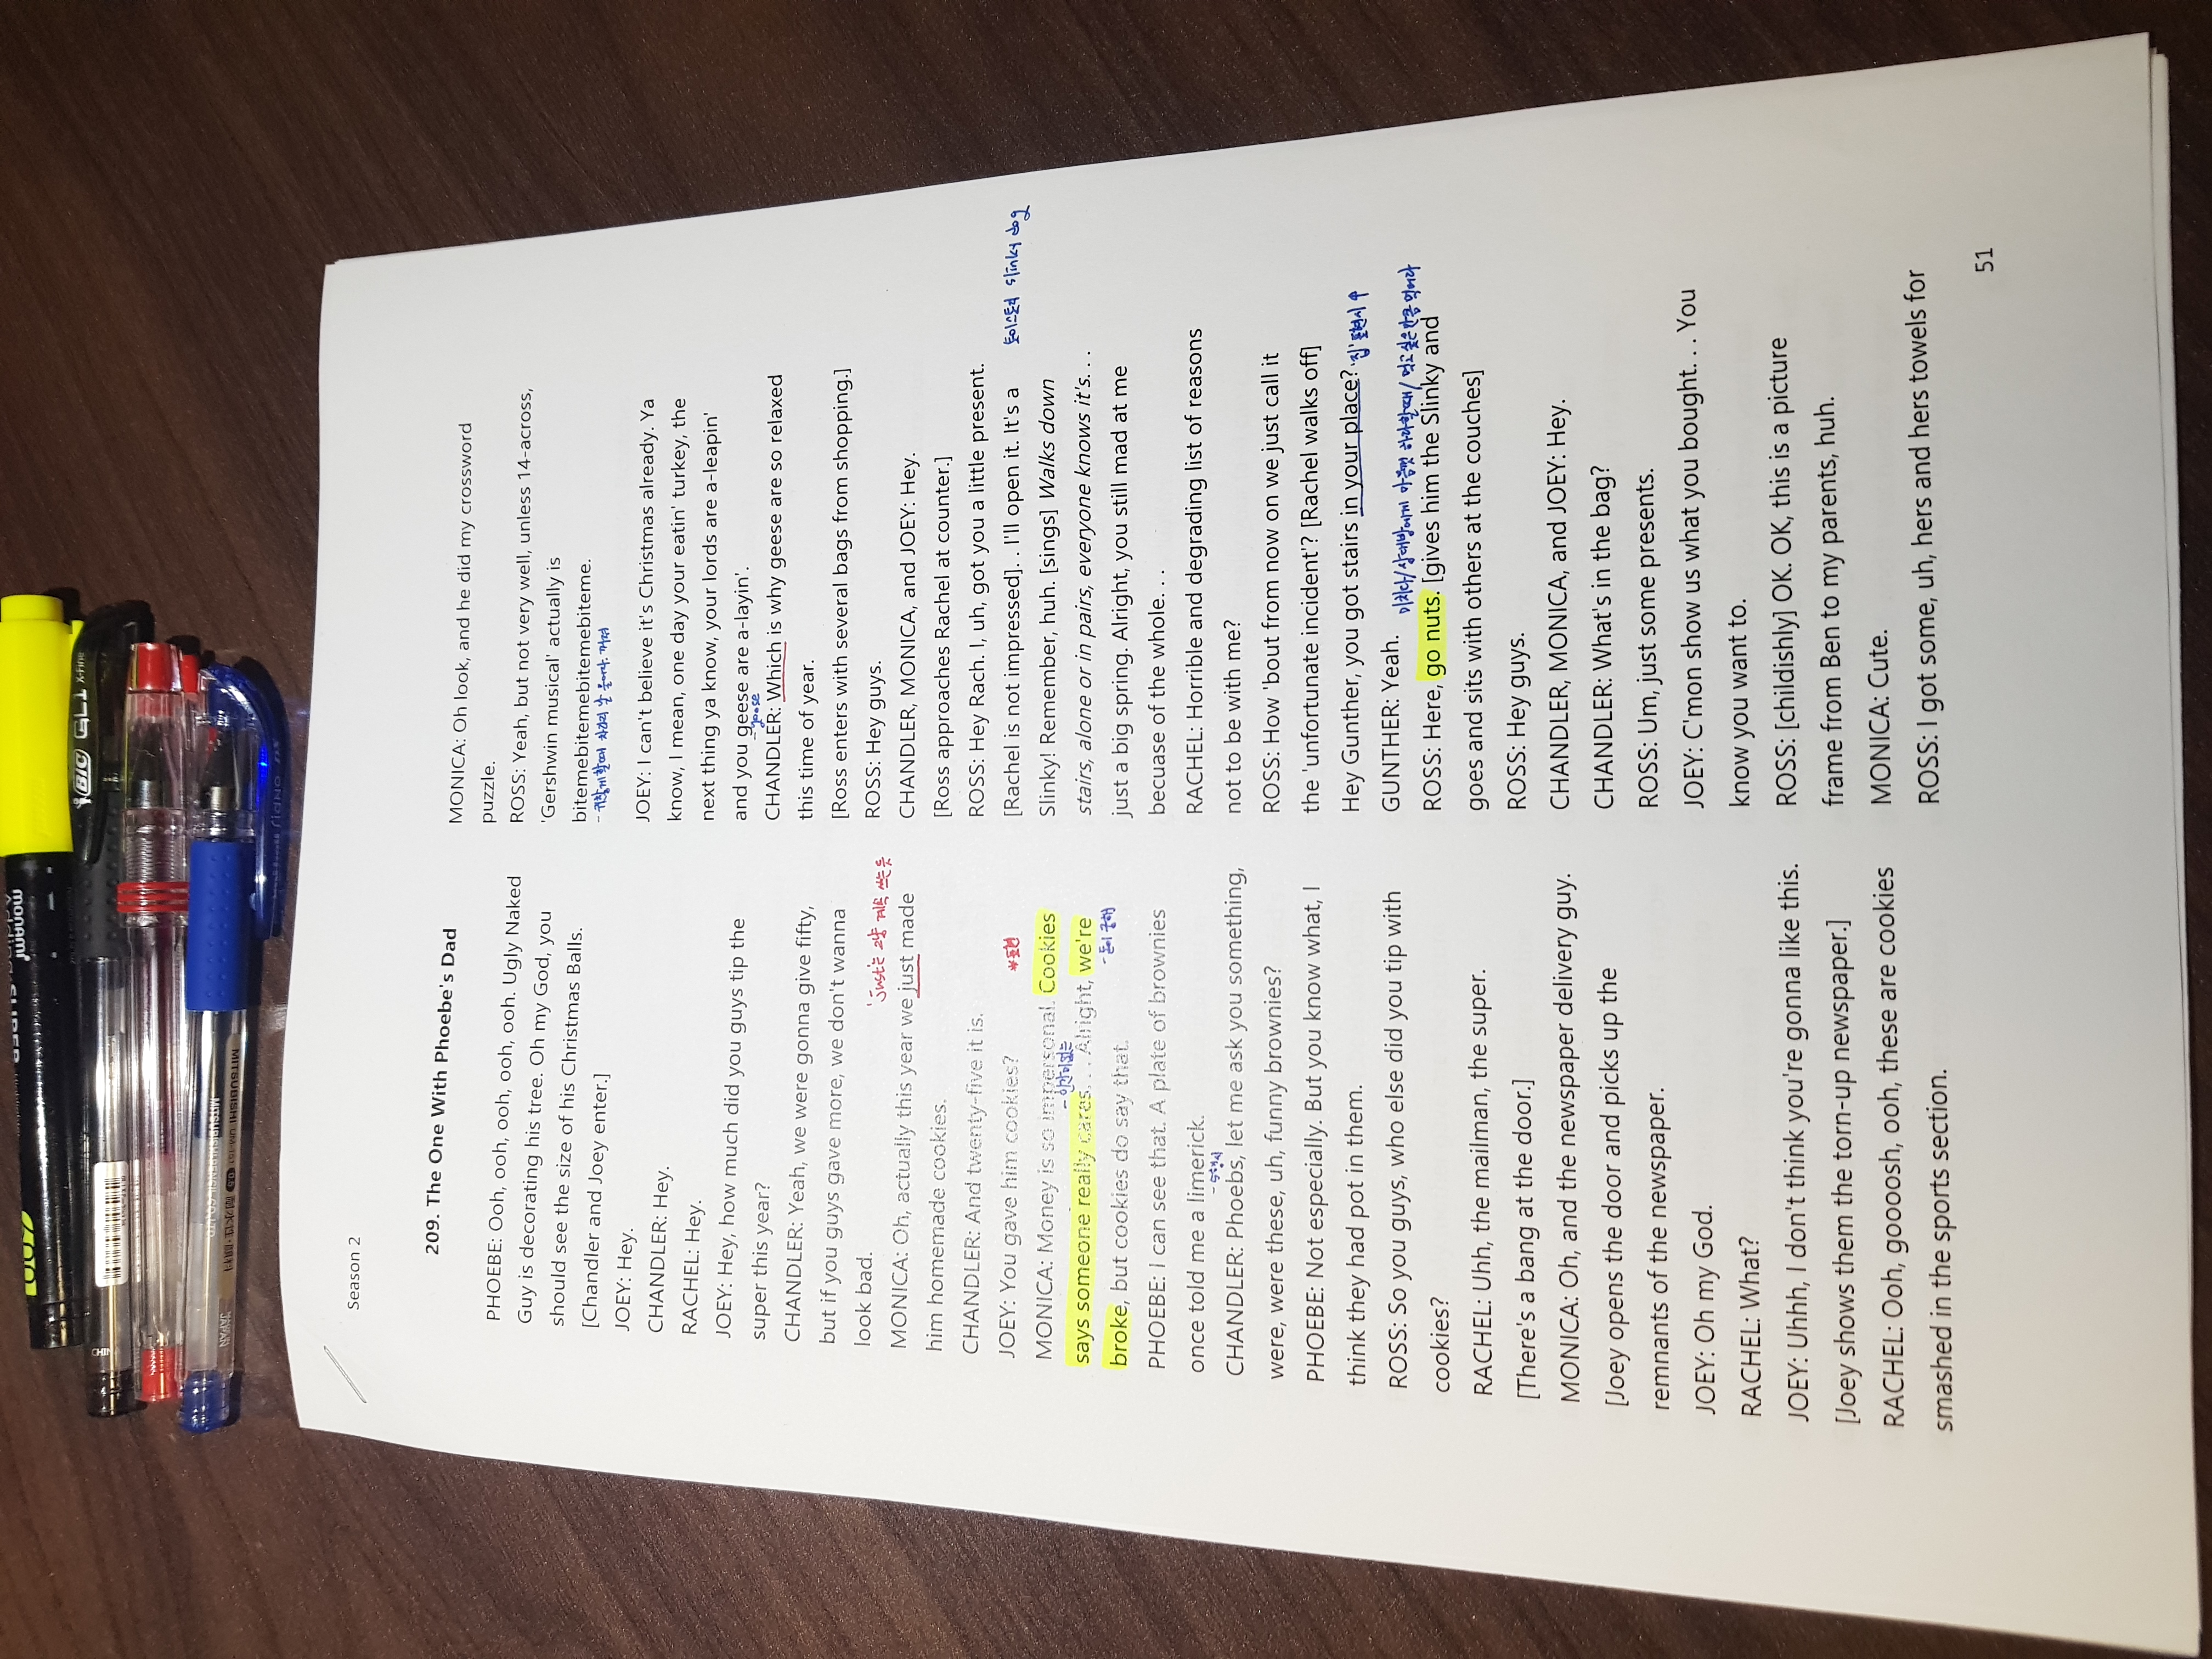 Season 2
209. The One With Phoebe's Dad
PHOEBE: Ooh, ooh, ooh, ooh, ooh. Ugly Naked
Guy is decorating his tree. Oh my God, you
should see the size of his Christmas Balls.
[Chandler and Joey enter.]
JOEY: Hey.
CHANDLER: Hey.
RACHEL: Hey.
JOEY: Hey, how much did you guys tip the
super this year?
CHANDLER: Yeah, we were gonna give fifty,
but if you guys gave more, we don't wanna
look bad.
'Just'는 그냥 계속 쓰는듯
MONICA: Oh, actually this year we just made
him homemade cookies.
CHANDLER: And twenty-five it is.
JOEY: You gave him cookies?
*표현
MONICA: Money is so impersonal. Cookies
- 인간미없는
says someone really cares. . . Alright, we're
- 돈이 궁해
broke, but cookies do say that.
PHOEBE: I can see that. A plate of brownies
once told me a limerick.
- 5행시
CHANDLER: Phoebs, let me ask you something,
were, were these, uh, funny brownies?
PHOEBE: Not especially. But you know what, I
think they had pot in them.
ROSS: So you guys, who else did you tip with
cookies?
RACHEL: Uhh, the mailman, the super.
[There's a bang at the door.]
MONICA: Oh, and the newspaper delivery guy.
[Joey opens the door and picks up the
remnants of the newspaper.
JOEY: Oh my God.
RACHEL: What?
JOEY: Uhhh, I don't think you're gonna like this.
[Joey shows them the torn-up newspaper.]
RACHEL: Ooh, goooosh, ooh, these are cookies
smashed in the sports section.
MONICA: Oh look, and he did my crossword
puzzle.
ROSS: Yeah, but not very well, unless 14-across,
'Gershwin musical' actually is
bitemebitemebitemebiteme.
- 귀찮게할때 저리 꺼져
JOEY: I can't believe it's Christmas already. Ya
know, I mean, one day your eatin' turkey, the
next thing ya know, your lords are a-leapin'
and you geese are a-layin'.
goose
CHANDLER: Which is why geese are so relaxed
this time of year.
[Ross enters with several bags from shopping.]
ROSS: Hey guys.
CHANDLER, MONICA, and JOEY: Hey.
[Ross approaches Rachel at counter.]
ROSS: Hey Rach. I, uh, got you a little present.
[Rachel is not impressed]. . I'll open it. It's a
토이스토리 slinky dog
Slinky! Remember, huh. [sings] Walks down
stairs, alone or in pairs, everyone knows it's. . .
just a big spring. Alright, you still mad at me
becuase of the whole. . .
RACHEL: Horrible and degrading list of reasons
not to be with me?
ROSS: How 'bout from now on we just call it
the 'unfortunate incident'? [Rachel walks off]
Hey Gunther, you got stairs in your place?
'집' 표현시 ↑
GUNTHER: Yeah.
미치다/상대방에게 마음껏 하라할때/ 먹고싶은만큼 먹어라
ROSS: Here, go nuts. [gives him the Slinky and
goes and sits with others at the couches]
ROSS: Hey guys.
CHANDLER, MONICA, and JOEY: Hey.
CHANDLER: What's in the bag?
ROSS: Um, just some presents.
JOEY: C'mon show us what you bought. . . You
know you want to.
ROSS: [childishly] OK. OK, this is a picture
frame from Ben to my parents, huh.
MONICA: Cute.
ROSS: I got some, uh, hers and hers towels for
51
BIC
MITSUBISHI
JAPAN